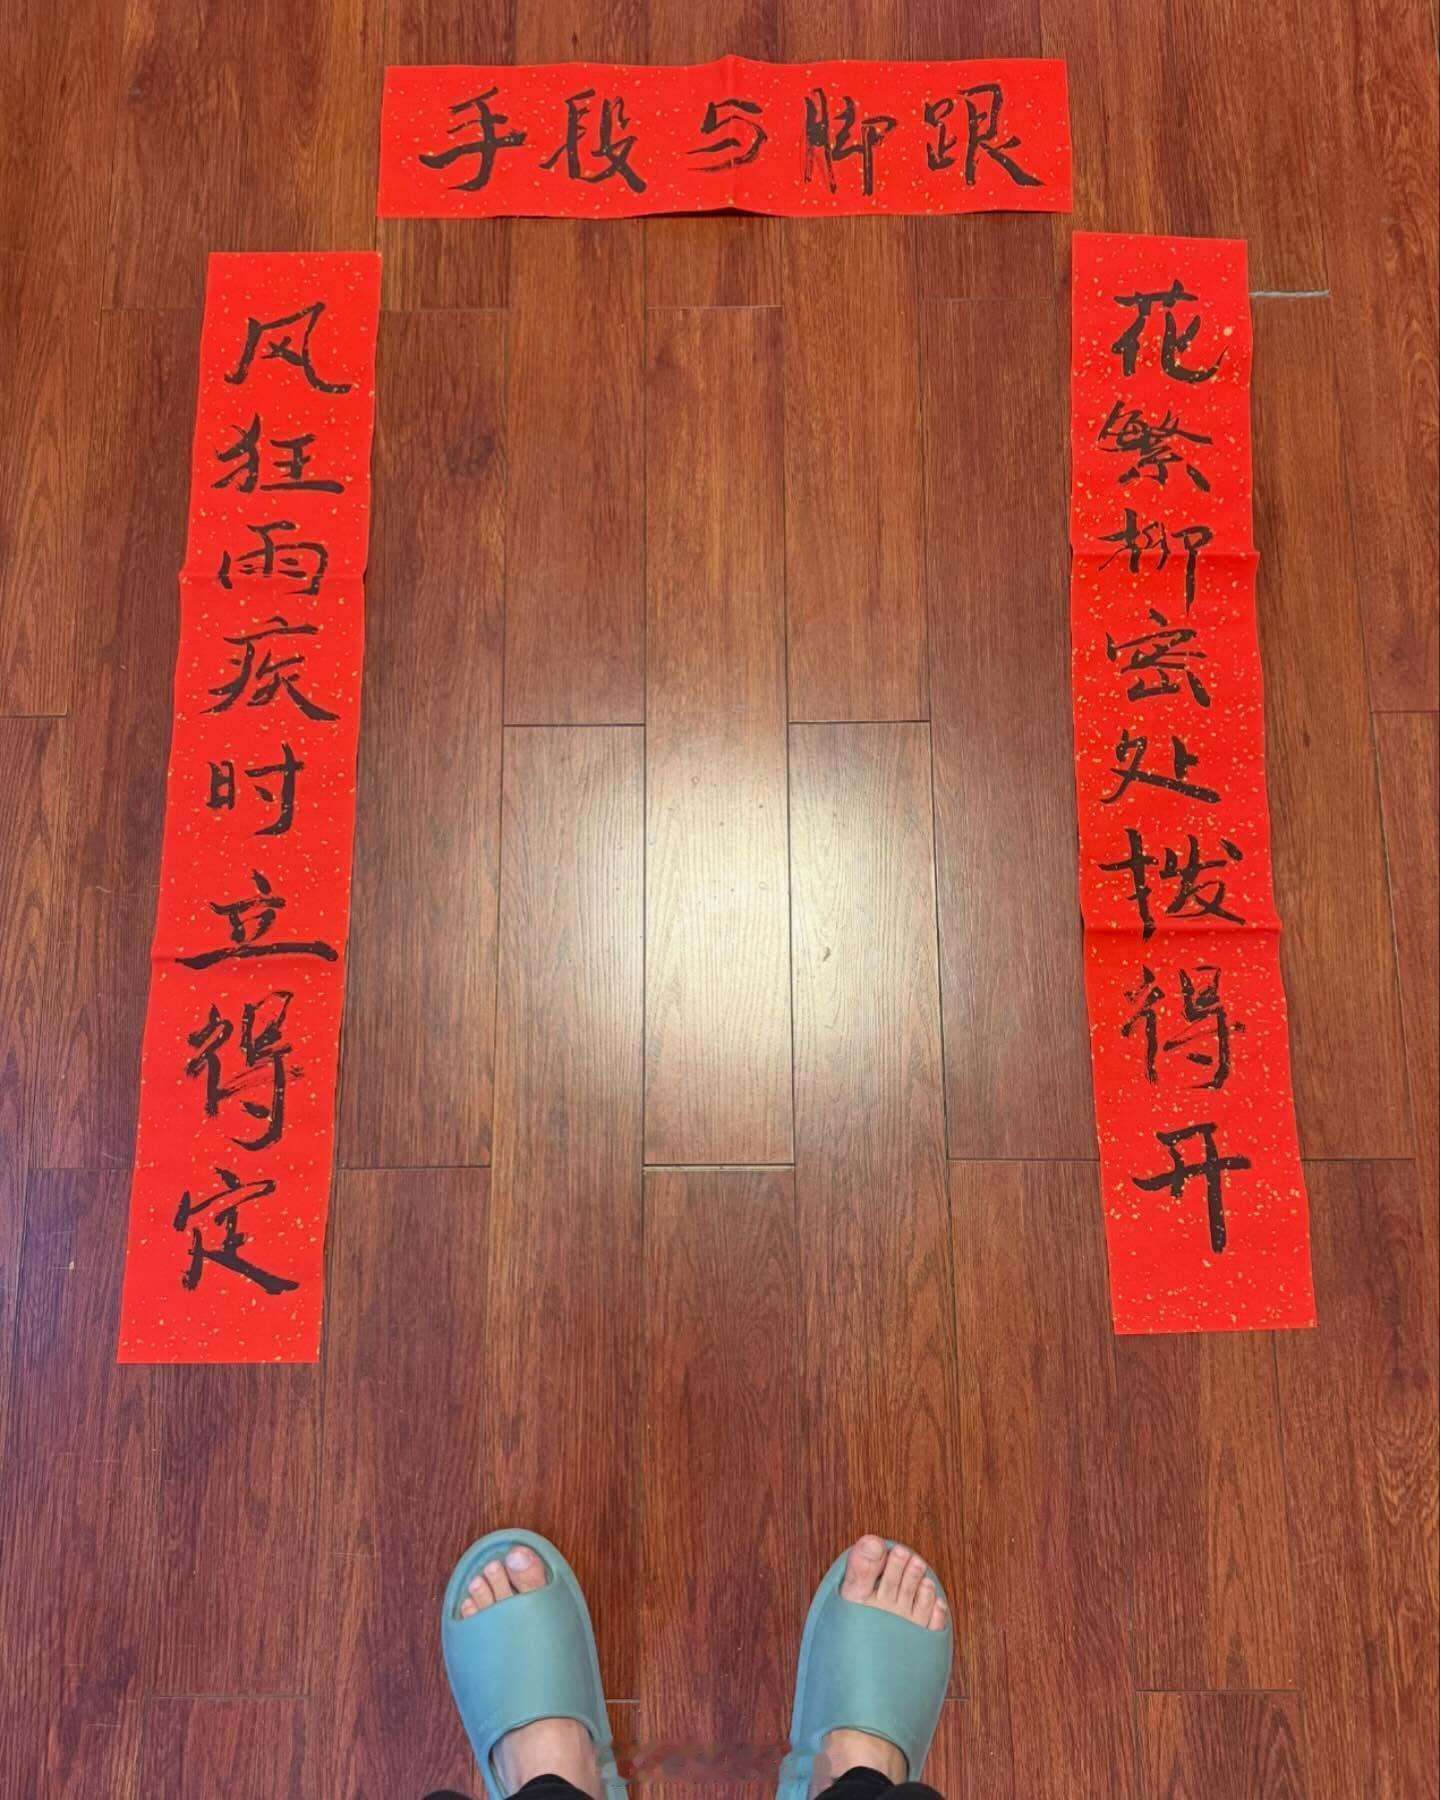 手段与脚跟
花繁柳密处拨得开
风狂雨疾时立得定